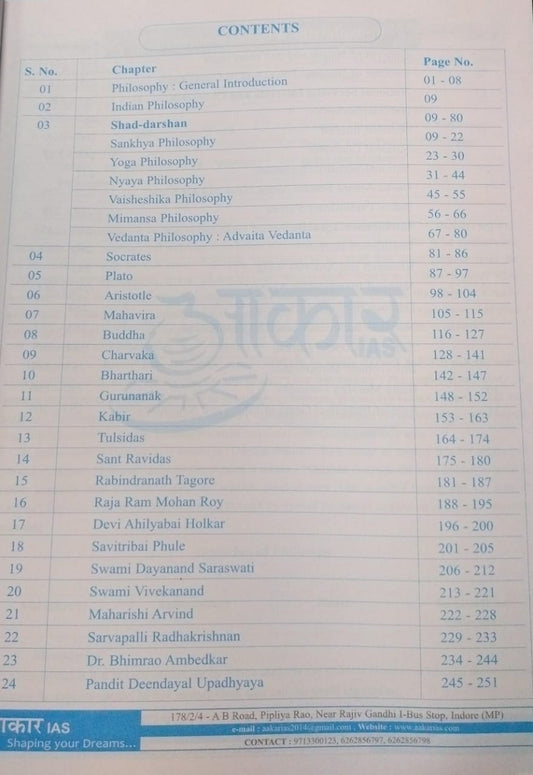 CONTENTS
S. No. Chapter Page No.
01 Philosophy : General Introduction 01 - 08
02 Indian Philosophy 09
03 Shad-darshan 09 - 80
Sankhya Philosophy 09 - 22
Yoga Philosophy 23 - 30
Nyaya Philosophy 31 - 44
Vaisheshika Philosophy 45 - 55
Mimansa Philosophy 56 - 66
Vedanta Philosophy : Advaita Vedanta 67 - 80
04 Socrates 81 - 86
05 Plato 87 - 97
06 Aristotle 98 - 104
07 Mahavira 105 - 115
08 Buddha 116 - 127
09 Charvaka 128 - 141
10 Bharthari 142 - 147
11 Gurunanak 148 - 152
12 Kabir 153 - 163
13 Tulsidas 164 - 174
14 Sant Ravidas 175 - 180
15 Rabindranath Tagore 181 - 187
16 Raja Ram Mohan Roy 188 - 195
17 Devi Ahilyabai Holkar 196 - 200
18 Savitribai Phule 201 - 205
19 Swami Dayanand Saraswati 206 - 212
20 Swami Vivekanand 213 - 221
21 Maharishi Arvind 222 - 228
22 Sarvapalli Radhakrishnan 229 - 233
23 Dr. Bhimrao Ambedkar 234 - 244
24 Pandit Deendayal Upadhyaya 245 - 251
आकार IAS
ाकार IAS
Shaping your Dreams...
178/2/4 - A B Road, Pipliya Rao, Near Rajiv Gandhi I-Bus Stop, Indore (MP)
e-mail : aakarias2014@gmail.com , Website : www.aakarias.com
CONTACT : 9713300123, 6262856797, 6262856798